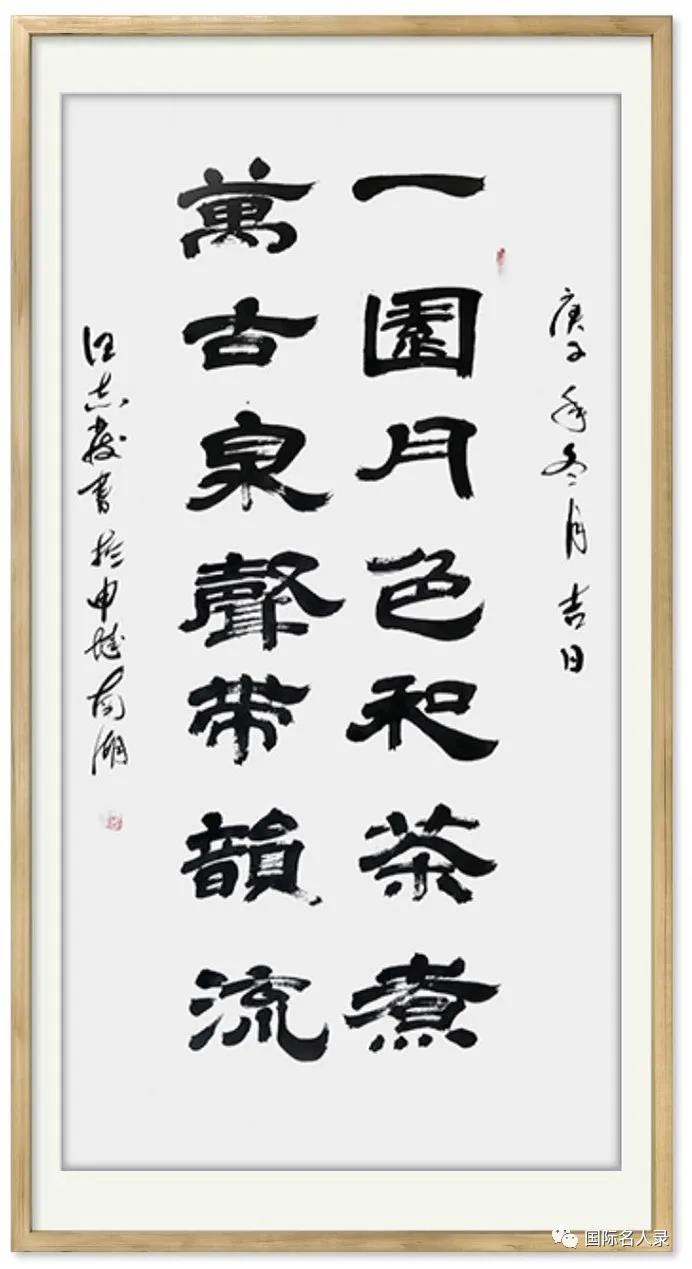 庚子年冬月吉日
一園月色和茶煮
萬古泉聲帶韻流
汪志書於申城南湖
国际名人录